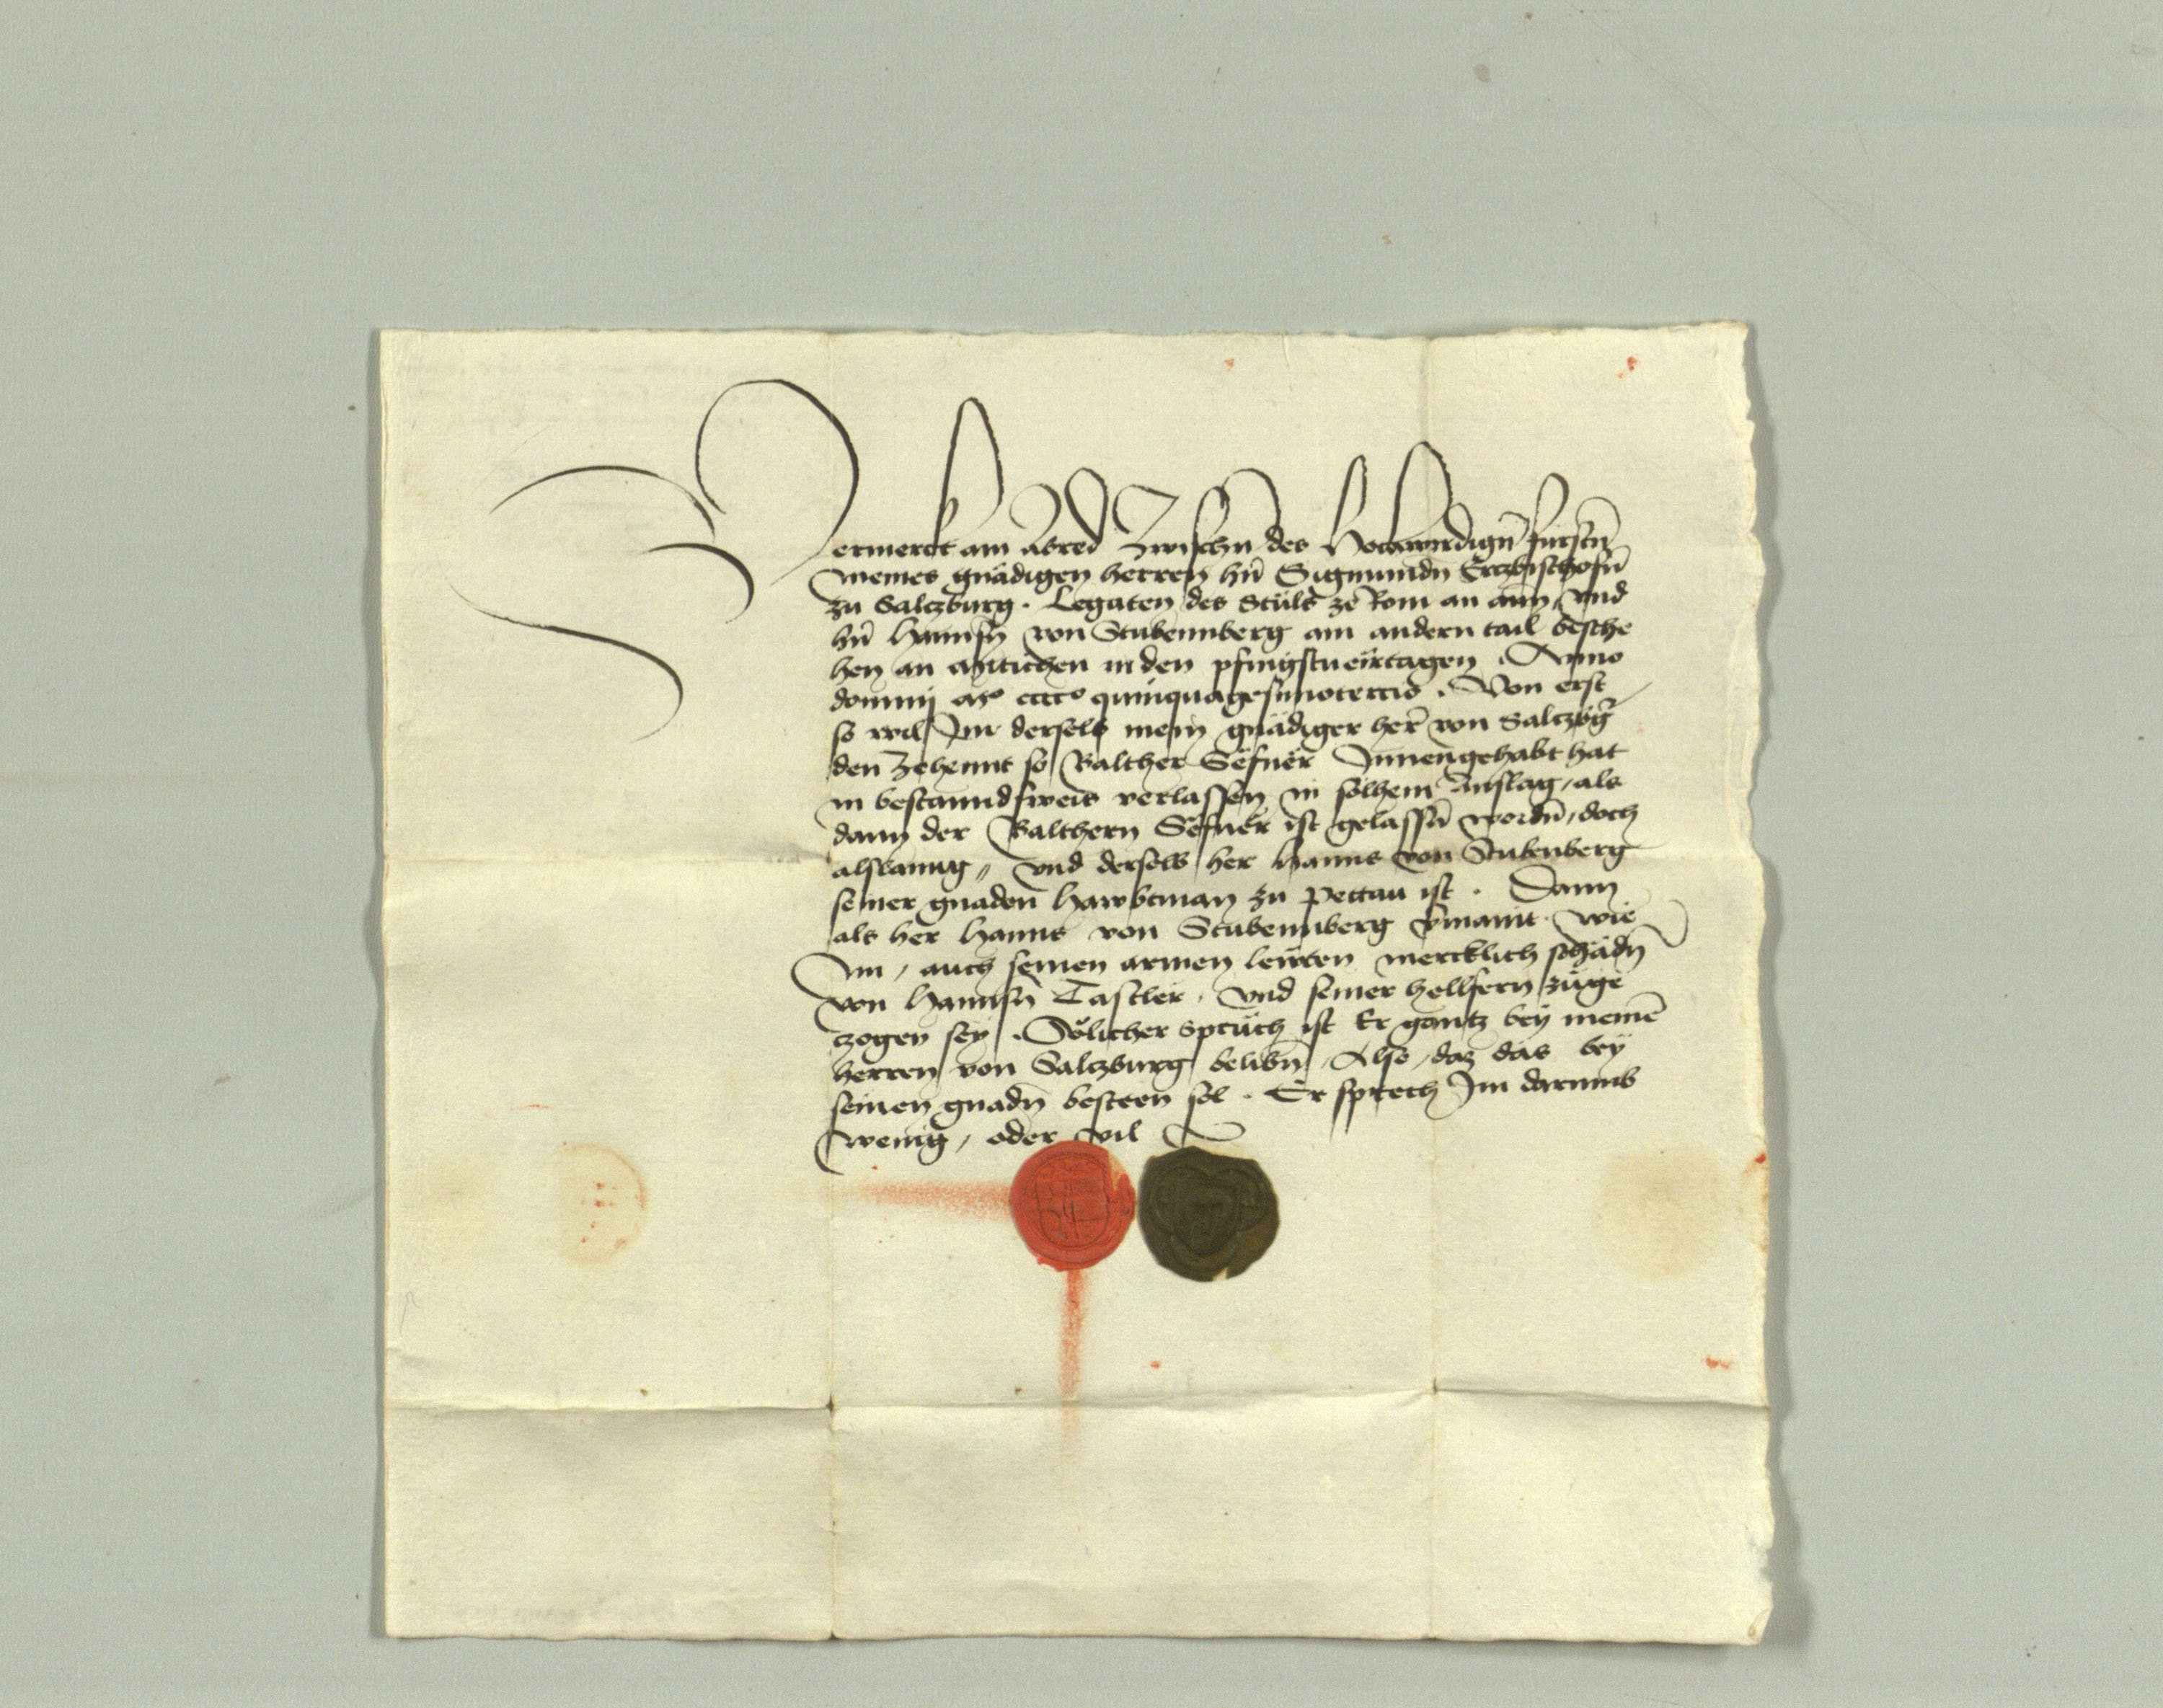 Vermerckt am abred Zwischn̄ des Hochwirdign̄ fürstn̄
meines gnädigen herren hn̄ Sigmundn̄ Erczbischofn̄
zu Salczburg . Legaten des Stüls ze Rom an aim / vnd
hn̄ Hannsn̄ von Stubennberg am andern tail besche
hen an Mitichen in den pfingstueirtagen . Anno
dominj Mº ccccº quinquagesimotercio . Von erst
so wil Im derselb mein gnädiger her̄ von Salczbḡ
den Zehennt so Balther Sefner Innengehabt hat
in bestanndsweis verlassen in solhem Anslag / als
dann der Balthern Sefner ist gelassn̄ wordn̄ / doch
alslanng // vnd derselb her Hanns von Stubenberg
seiner gnaden Hawbtman zu Pettau ist . Dann
als her Hanns von Stubennberg v̄maint wie
Im / auch seinen armen lewten mercklich schädn̄
von Hannsn̄ Tastler / vnd seiner hellfern züge
czogen sey . Sölicher sprüch ist Er gantz bey meinē
herren von Salczburg belibn̄ / Also / daz das bey
seinen gnadn̄ besteen sol . Er sprech Im darumb
wenig / oder vil